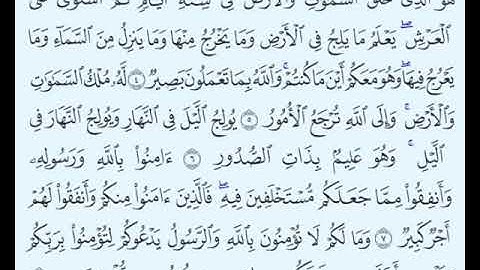 هُوَ ٱلَّذِى خَلَقَ ٱلسَّمَٰوَٰتِ وَٱلْأَرْضَ فِى سِتَّةِ أَيَّامٍ ثُمَّ ٱسْتَوَىٰ عَلَى
ٱلْعَرْشِ ۖ يَعْلَمُ مَا يَلِجُ فِى ٱلْأَرْضِ وَمَا يَخْرُجُ مِنْهَا وَمَا يَنزِلُ مِنَ ٱلسَّمَآءِ وَمَا
يَعْرُجُ فِيهَا ۖ وَهُوَ مَعَكُمْ أَيْنَ مَا كُنتُمْ ۚ وَٱللَّهُ بِمَا تَعْمَلُونَ بَصِيرٌ ٤ لَّهُۥ مُلْكُ ٱلسَّمَٰوَٰتِ
وَٱلْأَرْضِ ۚ وَإِلَى ٱللَّهِ تُرْجَعُ ٱلْأُمُورُ ٥ يُولِجُ ٱلَّيْلَ فِى ٱلنَّهَارِ وَيُولِجُ ٱلنَّهَارَ فِى
ٱلَّيْلِ ۚ وَهُوَ عَلِيمٌۢ بِذَاتِ ٱلصُّدُورِ ٦ ءَامِنُوا۟ بِٱللَّهِ وَرَسُولِهِۦ
وَأَنفِقُوا۟ مِمَّا جَعَلَكُم مُّسْتَخْلَفِينَ فِيهِ ۖ فَٱلَّذِينَ ءَامَنُوا۟ مِنكُمْ وَأَنفَقُوا۟ لَهُمْ
أَجْرٌ كَبِيرٌ ٧ وَمَا لَكُمْ لَا تُؤْمِنُونَ بِٱللَّهِ ۙ وَٱلرَّسُولُ يَدْعُوكُمْ لِتُؤْمِنُوا۟ بِرَبِّكُمْ